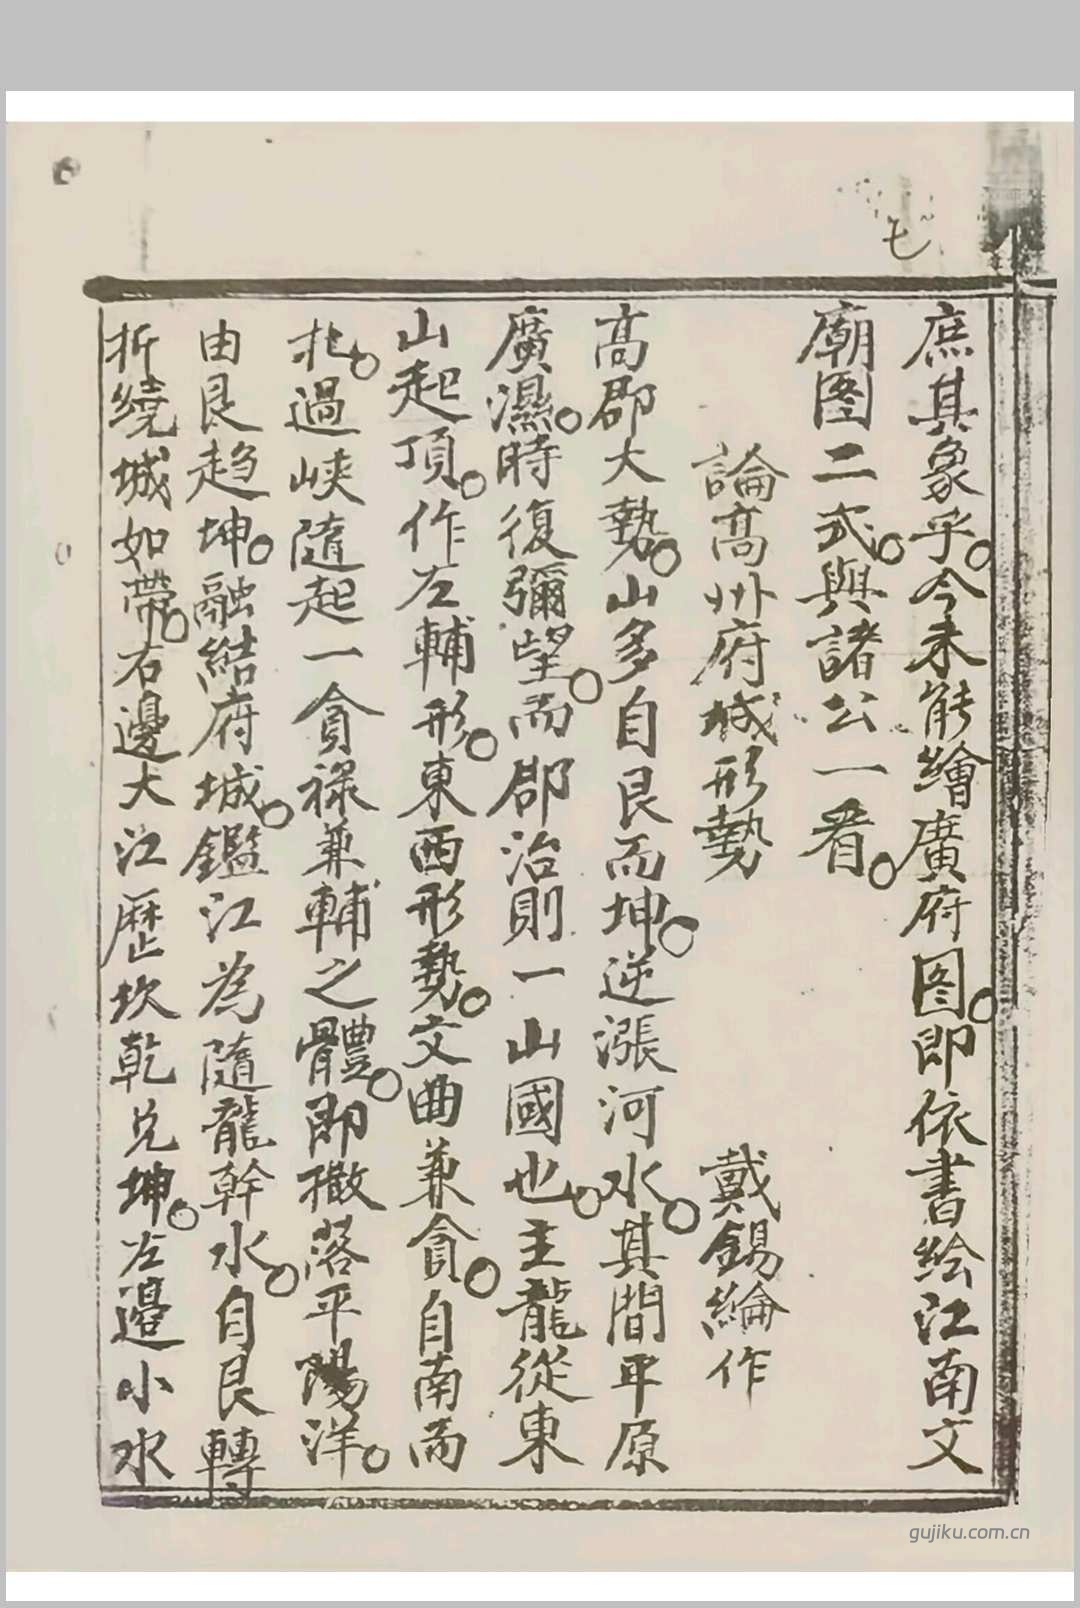 七
庶其象乎。今未能繪廣府图。即依書绘江南文
廟图二式。與諸公一看。
論高州府城形勢 戴錫綸作
高郡大勢。山多自艮而坤。逆漲河水。其間平原
廣濕。時復彌望。而郡治則一山國也。主龍從東
山起頂。作左輔形。東西形勢。文曲兼貪。自南而
北。過峽隨起一貪祿兼輔之體。即撒落平陽洋。
由艮趋坤。融結府城。鑑江為隨龍幹水。自艮轉
折繞城如帶。右邊大江歷坎乾兑坤。左邉小水
gujiku.com.cn